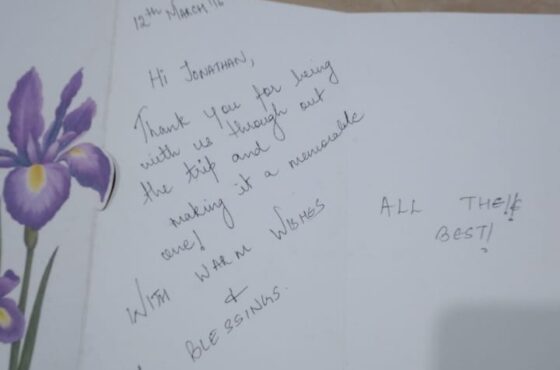 12th MARCH '16
Hi JONATHAN,
Thank you for being
with us through out
the trip and
making it a memorable
one!
WITH WARM WISHES
&
BLESSINGS.
ALL THE
BEST!